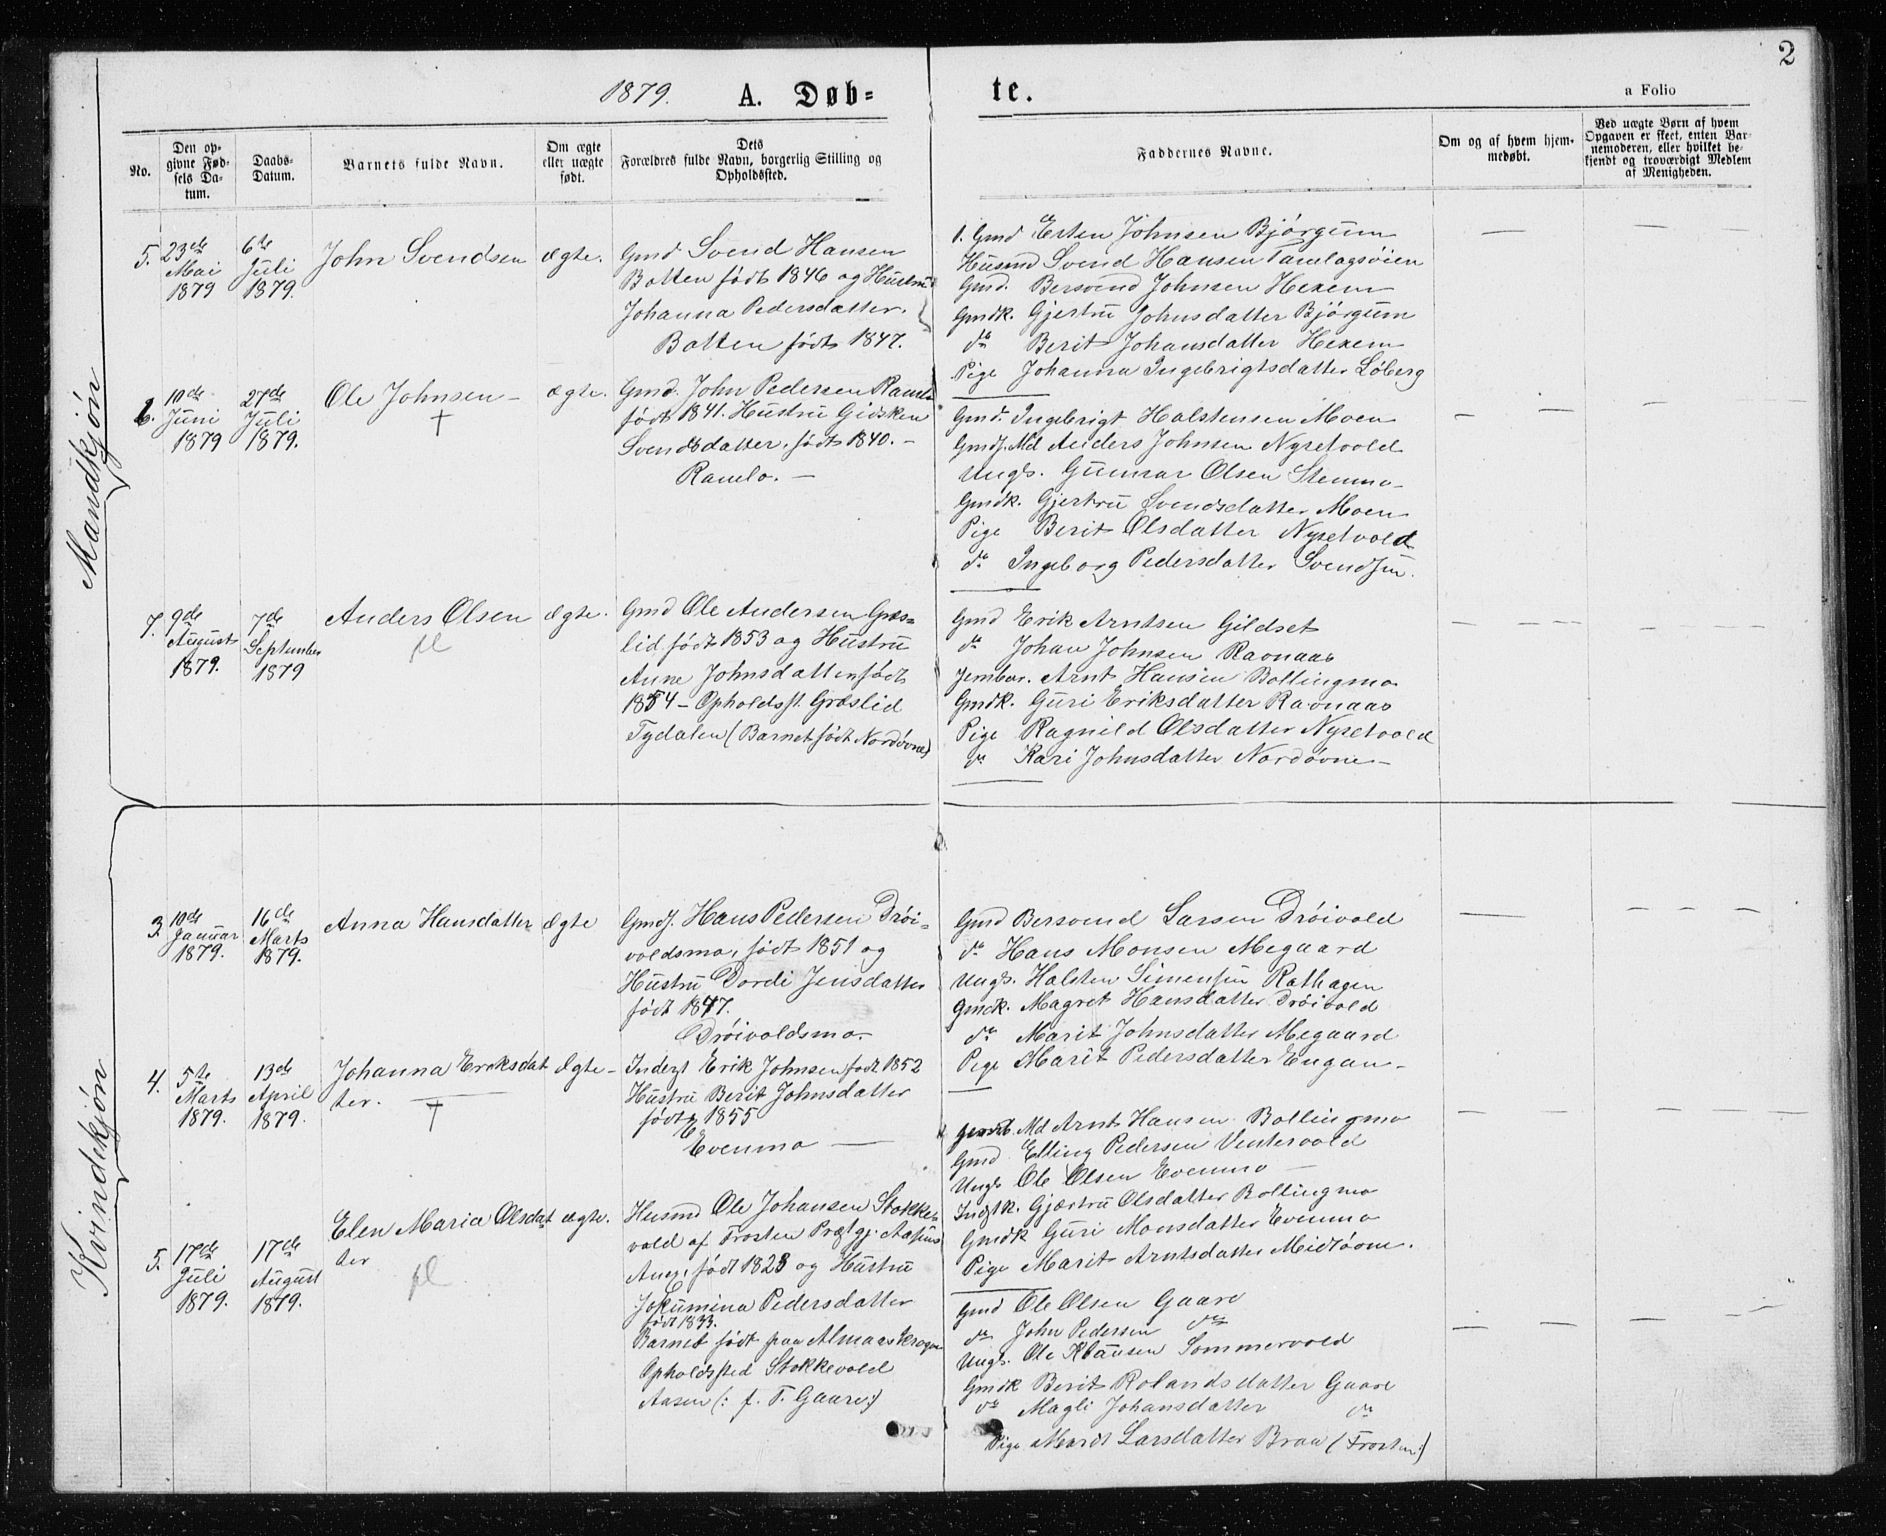 2
1879. A. Døb=te.
a Folio
No.
Den opgivne Fødsels Datum.
Daabs-Datum.
Barnets fulde Navn.
Om ægte eller uægte født.
Dets Forældres fulde Navn, borgerlig Stilling og Opholdssted.
Faddernes Navne.
Om og af hvem hjemmedøbt.
Ved uægte Børn af hvem Opgaven er skeet, enten Barnemoderen, eller hvilket bekjendt og troværdigt Medlem af Menigheden.
Mandkjøn
5. 23de Mai 1879
6te Juli 1879.
John Svendsen
ægte.
Gmd Svend Hansen
Botten født 1846 og Hustru
Johanna Pedersdatter.
Botten født 1847.
1. Gmd Esten Johnsen Bjørgum
Husmd Svend Hansen Tamlagsøien
Gmd. Bersvend Johnsen Hexem
Gmdk. Gjertru Johnsdatter Bjørgum
do Berit Johansdatter Hexem
Pige Johanna Ingebrigtsdatter Løberg
6. 10de Juni 1879
27de Juli 1879.
Ole Johnsen –
†
ægte.
Gmd. John Pedersen Ramlo
født 1841. Hustru Gidsken
Svendsdatter, født 1840. –
Ramlo. –
Gmd. Ingebrigt Halstensen Moen
Gmdf. Md Anders Johnsen Nyretvold
Ungk. Gunnar Olsen Stenmo
Gmdk. Gjertru Svendsdatter Moen
Pige Berit Olsdatter Nyretvold
do Ingeborg Pedersdatter
7. 9de August 1879.
7de September 1879
Anders Olsen
fl
ægte.
Gmd Ole Andersen Græs=
lid født 1853 og Hustru
Anne Johnsdatter født
1854 – Opholdsst. Græslid
Tydalen (Barnet født Nordøvne)
Gmd Erik Arntsen Gildset
do Johan Johnsen Ravnaas
Arnt Hansen Bollingmo
Gmdk. Guri Eriksdatter Ravnaas
Pige Ragnild Olsdatter Nyretvold
do Kari Johnsdatter Nordøvne –
Kvindekjøn
3 10de Januar 1879.
16de Marts 1879.
Anna Hansdatter
ægte
Gmdf. Hans Pedersen Drøi-
voldsmo, født 1851 og
Hustru Dordi Jensdatter
født 1847.
Drøivoldsmo.
Gmd Bersvend Larsen Drøivold
do Hans Monsen Megaard
Ungk. Halsten Simensen Rathagen
Gmdk. Magret Hansdatter Drøivold
do Marit Johnsdatter Megaard
Pige Marit Pedersdatter Engan –
4. 5te Marts 1879.
13de April 1879.
Johanna Eriksdat
ter.
†
ægte –
Inderst Erik Johnsen født 1852
Hustru Berit Johnsdatter
født 1855
Evenmo –
Md Arnt Hansen Bollingmo
Gmd Elling Pedersen Vintervold
Ungk Ole Olsen Evenmo –
Indstk. Gjærtru Olsdatter Bollingmo
Gmdk Guri Monsdatter Evenmo
Pige Marit Arntsdatter Midtøvne.
5. 17de Juli 1879.
17de August 1879.
Elen Maria Olsdat
ter
fl
ægte.
Husmd Ole Johansen Stokke-
vold af Frosten Prstgj. Aasens
Anex, født 1828 og Hustru
Jokumina Pedersdatter
født 1833.
Barnet født paa Almaaskrogen
Opholdssted Stokkevold
Aasen (: f. T. Gaare :)
Gmd Ole Olsen Gaare
do John Pedersen do
Ungk. Ole Klausen Sommervold
Gmdk Berit Rolandsdatter Gaare
do Magli Johansdatter do
Pige Marit Larsdatter Braa (Frosten :)